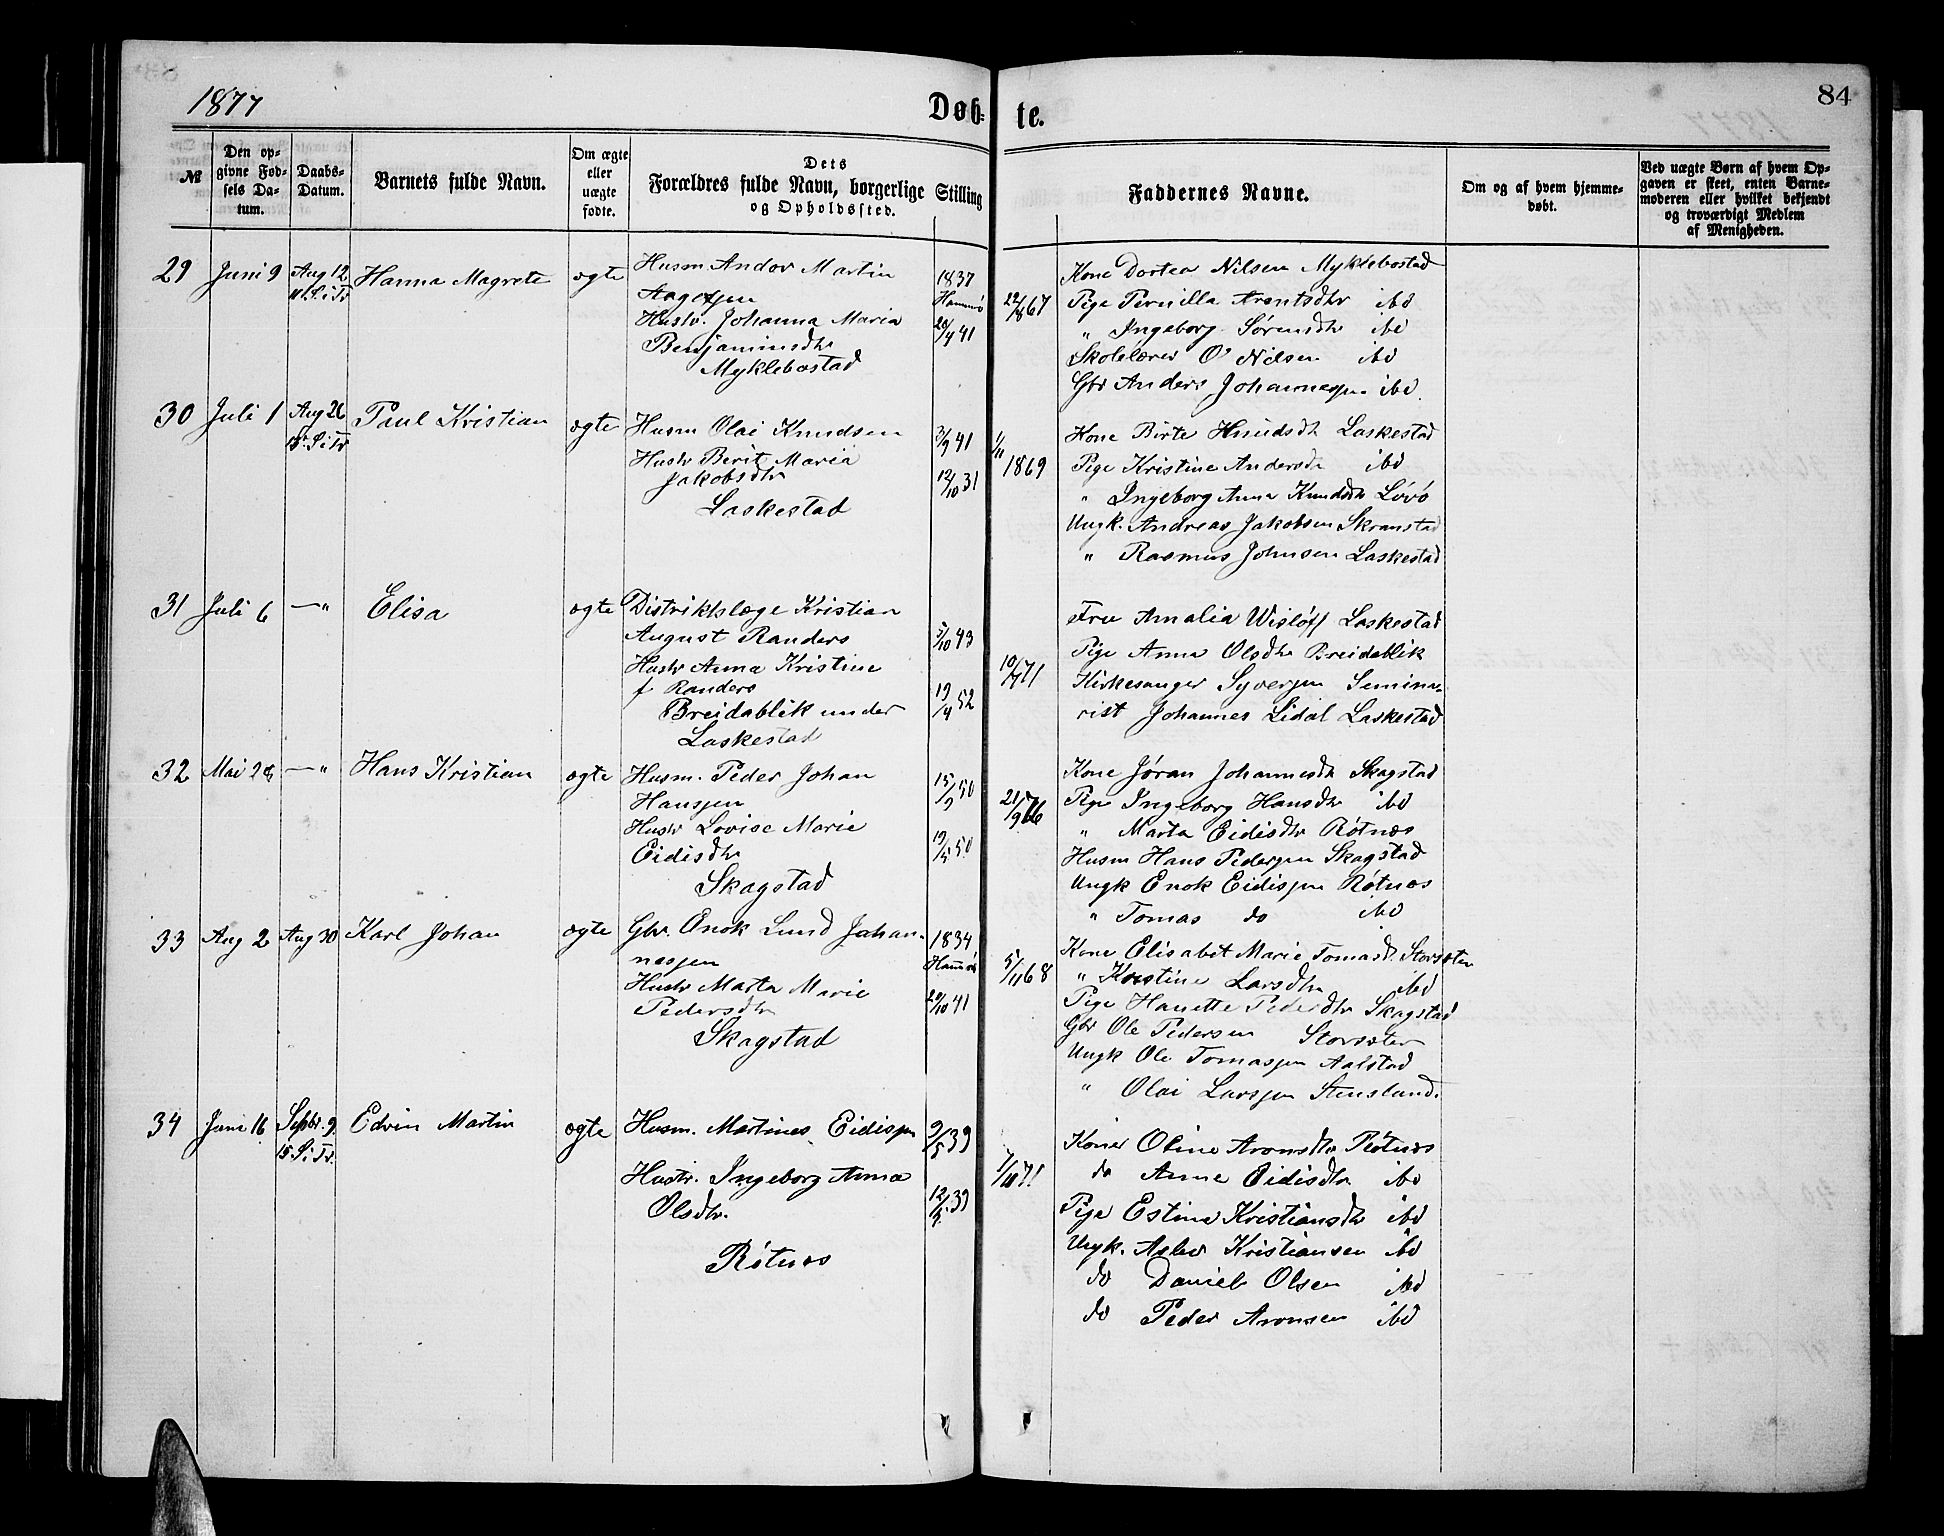 1877
Døb-
te.
84
№
Den op-
givne Fød-
sels Da-
tum.
Daabs-
Datum.
Barnets fulde Navn.
Om ægte
eller
uægte
fødte.
Dets
Forældres fulde Navn, borgerlige Stilling
og Opholdssted.
Faddernes Navne.
Om og af hvem hjemme-
døbt.
Ved uægte Børn af hvem Op-
gaven er skeet, enten Barne-
moderen eller hvilket bekjendt
og troværdigt Medlem
af Menigheden.
29 Juni 9 Aug 12 Hanna Magrete ægte
11 S. i Tr
Husm Andor Martin 1837
Aagesen Hammerø
Hustr. Johanna Maria 20/4 41
Benjaminsdtr
Myklebostad
22/8 67
Kone Dortea Nilsen Myklebostad
Pige Pernilla Arentsdtr ibd
" Ingeborg Sørensdtr ibd
Skolelærer O. Nilsen ibd
Gbr Anders Johannesen ibd.
30 Juli 1 Aug 26 Paul Kristian ægte
13 S. i Tr
Husm Olai Knudsen 3/9 41
Hustr Berit Maria
Jakobsdtr 12/10 31
Laskestad
1/11
1869
Kone Birte Knudsdt Laskestad
Pige Kristine Andersdtr ibd
" Ingeborg Anna Knudsdtr Løvø
Ungk. Andreas Jakobsen Skranstad
" Rasmus Johnsen Laskestad
31 Juli 6 — " Elisa ægte
Distriktslæge Kristian
August Randers 5/10 43
Hustr Anna Kristine
f Randers 19/4 52
Breidablik under
Laskestad
10/7 71
Fru Amalia Wisløff Laskestad
Pige Anna Olsdtr Breidablik
Kirkesanger Syversen Semina-
rist Johannes Lidal Laskestad
32 Mai 28 — " Hans Kristian ægte
Husm. Peder Johan 15/9 50
Hansen
Hustr Lovise Marie 19/5 50
Eidisdtr
Skagstad
21/9 76
Kone Jøran Johannesdtr Skagstad
Pige Ingeborg Hansdtr ibd
" Marta Eidisdtr Røtnes
Husm Hans Pedersen Skagstad
Ungk Enok Eidissen Røtnæs
" Tomas do ibd
33 Aug 2 Aug 30 Karl Johan ægte
Gbr. Enok Lund Johan- 1834
nessen Hammerø
Hustr Marta Marie 20/10 41
Pedersdtr
Skagstad
5/11 68
Kone Elisabet Marie Tomasd. Storsæter
" Kristine Larsdtr ibd
Pige Hanette Pedersdtr Skagstad
Gbr Ole Pedersen Storsæter
Ungk Ole Tomassen Aalstad
" Olai Larssen Stensland.
34 Juni 16 Septbr. 9 Edvin Martin ægte
15. S. i Tr.
Husm. Martines Eidissen 9/5 39
Hustr. Ingeborg Anna 12/3 39
Olsdtr.
Røtnæs
7/10 71
Koner Oline Aronsdtr Røtnæs
do Anne Eidisdtr ibd
Pige Estina Kristiansdtr ibd
Ungk. Asler Kristiansen ibd
do Daniel Olsen ibd
do Peder Aronsen ibd